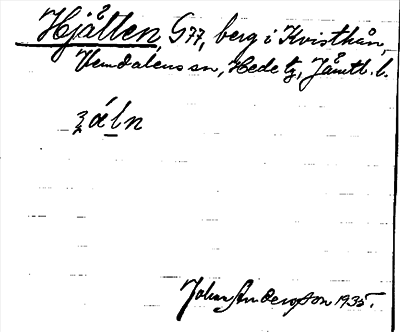 Hjåtten, G77, berg i Kvisthån,
Vemdalens sn, Hede tg, Jämtl. l.
ʒáln
Johan Anderson 1935.